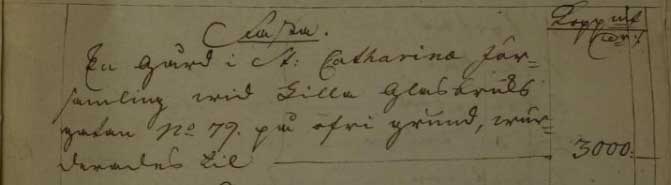 Fasta. Koppmt
En Gård i St: Catharinæ för-
samling wid Lilla Glasbruks
gatan No 79. på ofri grund, wur-
derades til 3000: